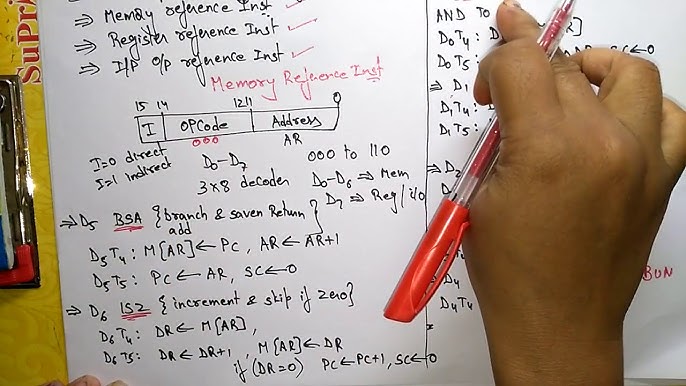 SuPrA
⇒ Memory reference Inst ✓
⇒ Register reference Inst ✓
⇒ I/P O/P reference Inst ✓
Memory Reference Inst
15 14 12 11 0
I OPCode Address
000 AR
I=0 direct
I=1 indirect
D₀-D₇
3×8 decoder
000 to 110
D₀-D₆ ⇒ Mem
D₇ ⇒ Reg/i/o
⇒ D₅ BSA {branch & saven Return add}
D₅T₄: M[AR]←PC, AR←AR+1
D₅T₅: PC←AR, SC←0
⇒ D₆ ISZ {increment & skip if Zero}
D₆T₄: DR←M[AR],
D₆T₅: DR←DR+1, M[AR]←DR
if (DR=0) PC←PC+1, SC←0
AND TO
D₀T₄:
D₀T₅: SC←0
⇒ D₁
D₁T₄:
D₁T₅:
⇒ D₂
D₄
D₄T₄
BUN